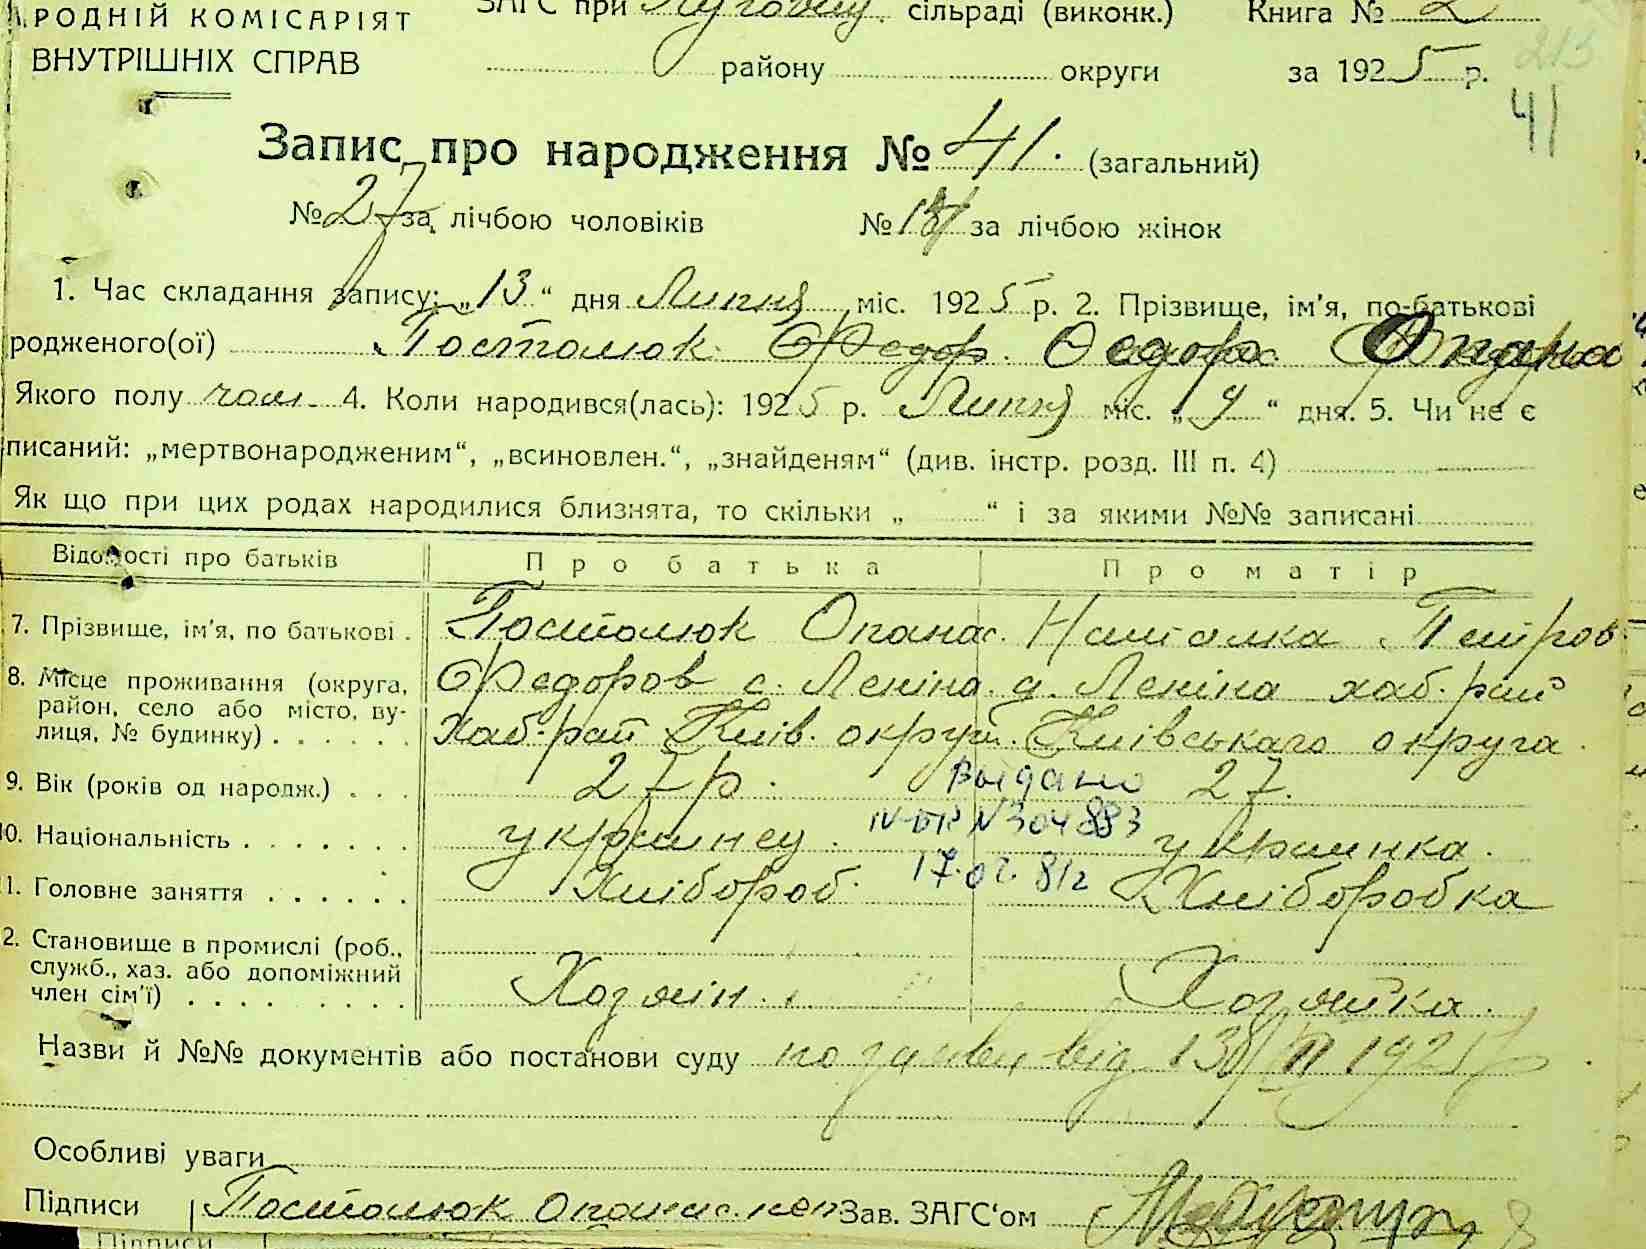 РОДНІЙ КОМІСАРІЯТ
ВНУТРІШНІХ СПРАВ
ЗАГС при сільраді (виконк.) Книга № 2
району округи за 1925 р.
213
41
Запис про народження № 41. (загальний)
№ 27 за лічбою чоловіків № за лічбою жінок
1. Час складання запису: „13“ дня Липня міс. 1925 р. 2. Прізвище, ім'я, по-батькові
родженого(ої) Постолюк Федор. Федора Опана
Якого полу чол. 4. Коли народився(лась): 1925 р. Липня міс. „9“ дня. 5. Чи не є
писаний: „мертвонародженим“, „всиновлен.“, „знайденям“ (див. інстр. розд. III п. 4)
Як що при цих родах народилися близнята, то скільки „ “ і за якими №№ записані
Відомості про батьків Про батька Про матір
7. Прізвище, ім'я, по батькові . Постолюк Опанас. Наталка Петров
8. Місце проживання (округа, район, село або місто, вулиця, № будинку) . . . . . . Федоров с. Леніна. Хаб-рай Київ. округи. с. Леніна хаб. рай Київського округа.
9. Вік (років од народж.) . . . 27 р. 27.
Выдано
IV-БК №304883
17.02.81г
10. Національність . . . . . . . українец. українка.
11. Головне заняття . . . . . . Хлібороб. Хліборобка
12. Становище в промислі (роб., служб., хаз. або допоміжний член сім'ї) . . . . . . . . Хозяін. Хозяйка.
Назви й №№ документів або постанови суду по заяві від 13/VII 1925
Особливі уваги
Підписи Постолюк Опанас Зав. ЗАГС'ом
Підписи